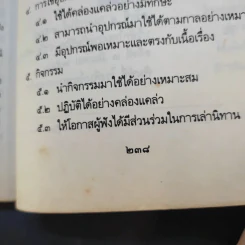 ๔.๑ ใช้ได้คล่องแคล่วอย่างมีทักษะ
๔.๒ สามารถนำอุปกรณ์มาใช้ได้ตามกาลอย่างเหมา
๔.๓ มีอุปกรณ์พอเหมาะและตรงกับเนื้อเรื่อง
๕ กิจกรรม
๕.๑ นำกิจกรรมมาใช้ได้อย่างเหมาะสม
๕.๒ ปฏิบัติได้อย่างคล่องแคล่ว
๕.๓ ให้โอกาสผู้ฟังได้มีส่วนร่วมในการเล่านิทาน
๒๓๘